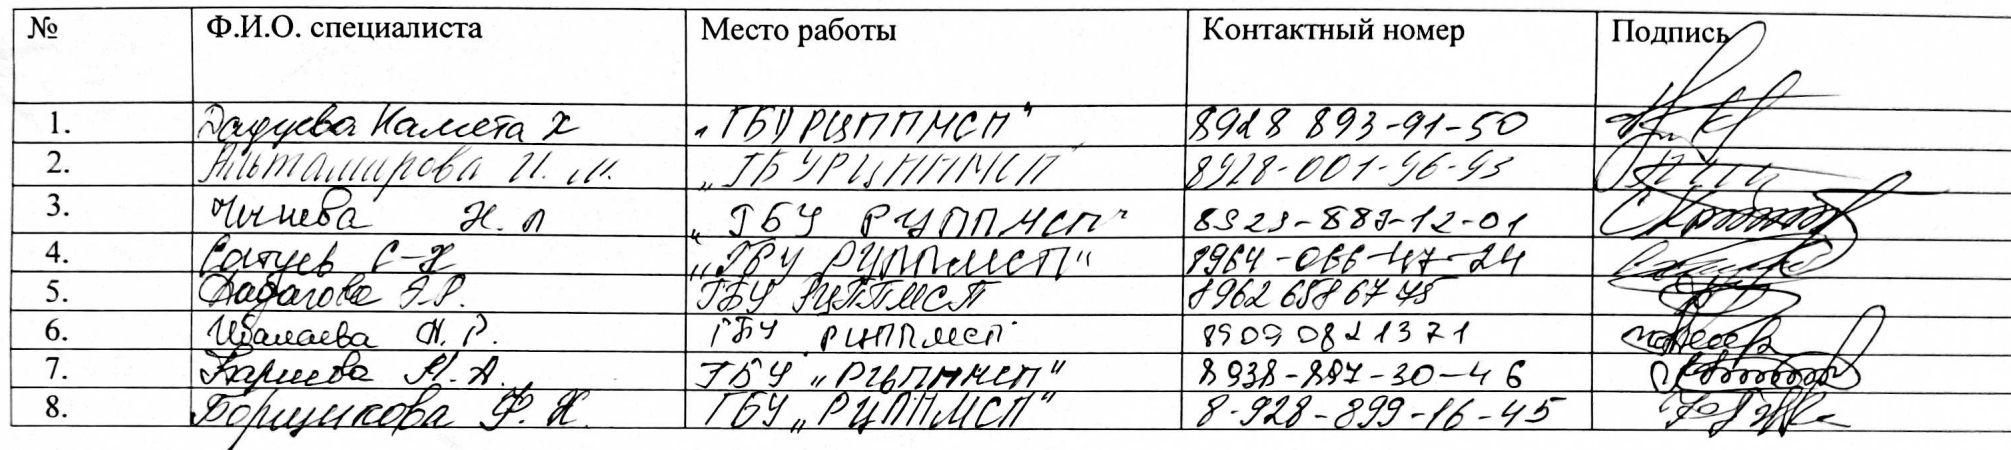 № Ф.И.О. специалиста Место работы Контактный номер Подпись
1. Дадуева Камета Х "ГБУ РЦППМСП" 8928 893-91-50
2. Альтамирова И. М. "ГБУ РЦППМСП 8928-001-96-93
3. Н. "ГБУ РЦППМСП" 8929-889-12-01
4. Сатуев С-Х "ГБУ РЦППМСП" 8964-066-47-24
5. ГБУ РЦППМСП 8962 658 67 75
6. ГБУ РЦППМСП 8909 082 13 71
7. ГБУ "РЦППМСП" 8938-897-30-46
8. Борщикова Ф. Х. ГБУ "РЦППМСП" 8-928-899-16-45